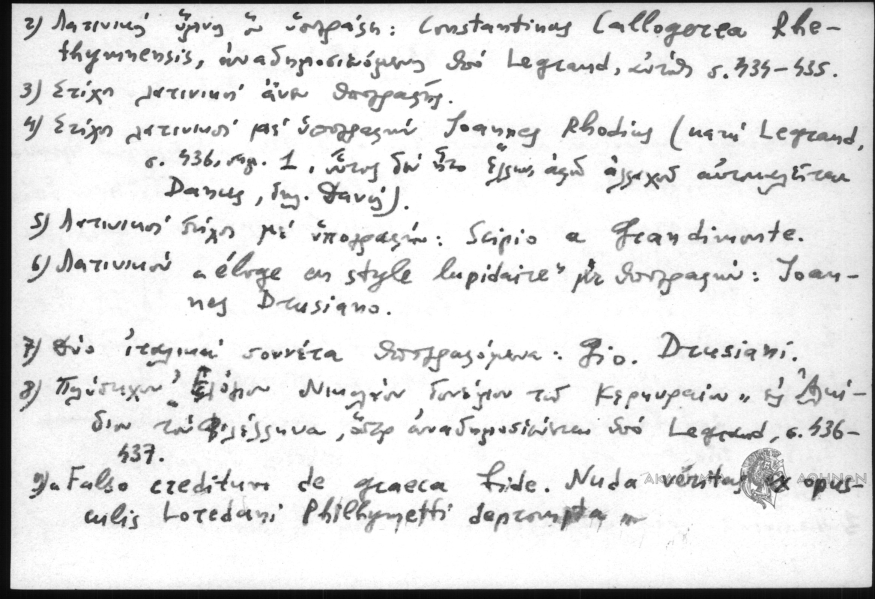 2) Λατινική ὕμνη ὑπογράφη: Constantinas Callogerea Rhe-
thymnensis, ἀναδημοσιευόμενη ὑπό Legrand, αὐτόθι σ. 434-435.
3) Στίχοι λατινικοί ἄνευ ὑπογραφῆς.
4) Στίχοι λατινικοί μέ ὑπογραφήν Joannes Rhodius (κατά Legrand,
σ. 436, σημ. 1, οὗτος δέν ἦτο Ἕλλην ἀφοῦ ἀλλαχοῦ αὐτοκαλεῖται
Danus, δηλ. Δανός).
5) Λατινικοί στίχοι μέ ὑπογραφήν: Scipio a Grandimonte.
6) Λατινικόν « éloge en style lapidaire » μέ ὑπογραφήν: Joan-
nes Drusiano.
7) Δύο ἰταλικά σοννέτα ὑπογραφόμενα: Gio. Drusiani.
8) Πολύστιχον Νικολάου τοῦ Κερκυραίου „ εἰς
τόν Φιλέλληνα, ὅπερ ἀναδημοσιεύεται ὑπό Legrand, σ. 436-
437.
9) « Falso creditum de graeca fide. Nuda véritas ex opus-
culis Loredani Philhymetti deprompta »
ΑΚΑΔΗΜΙΑ ΑΘΗΝΩΝ